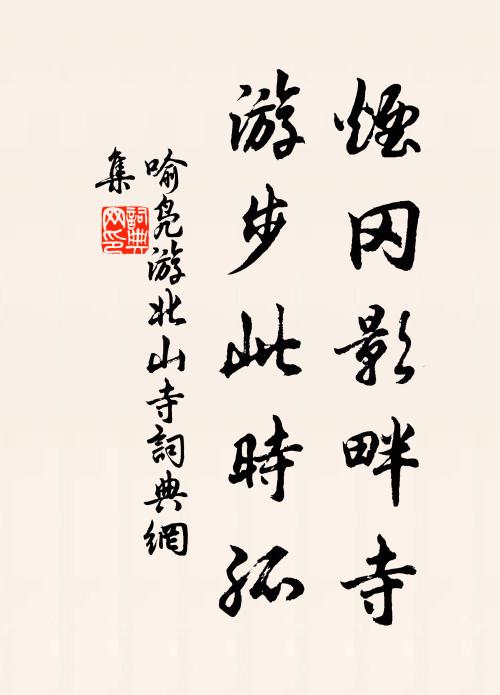 煙冈影畔寺
游步此時孤
喻凫游北山寺詞典網
集
詞典
网印